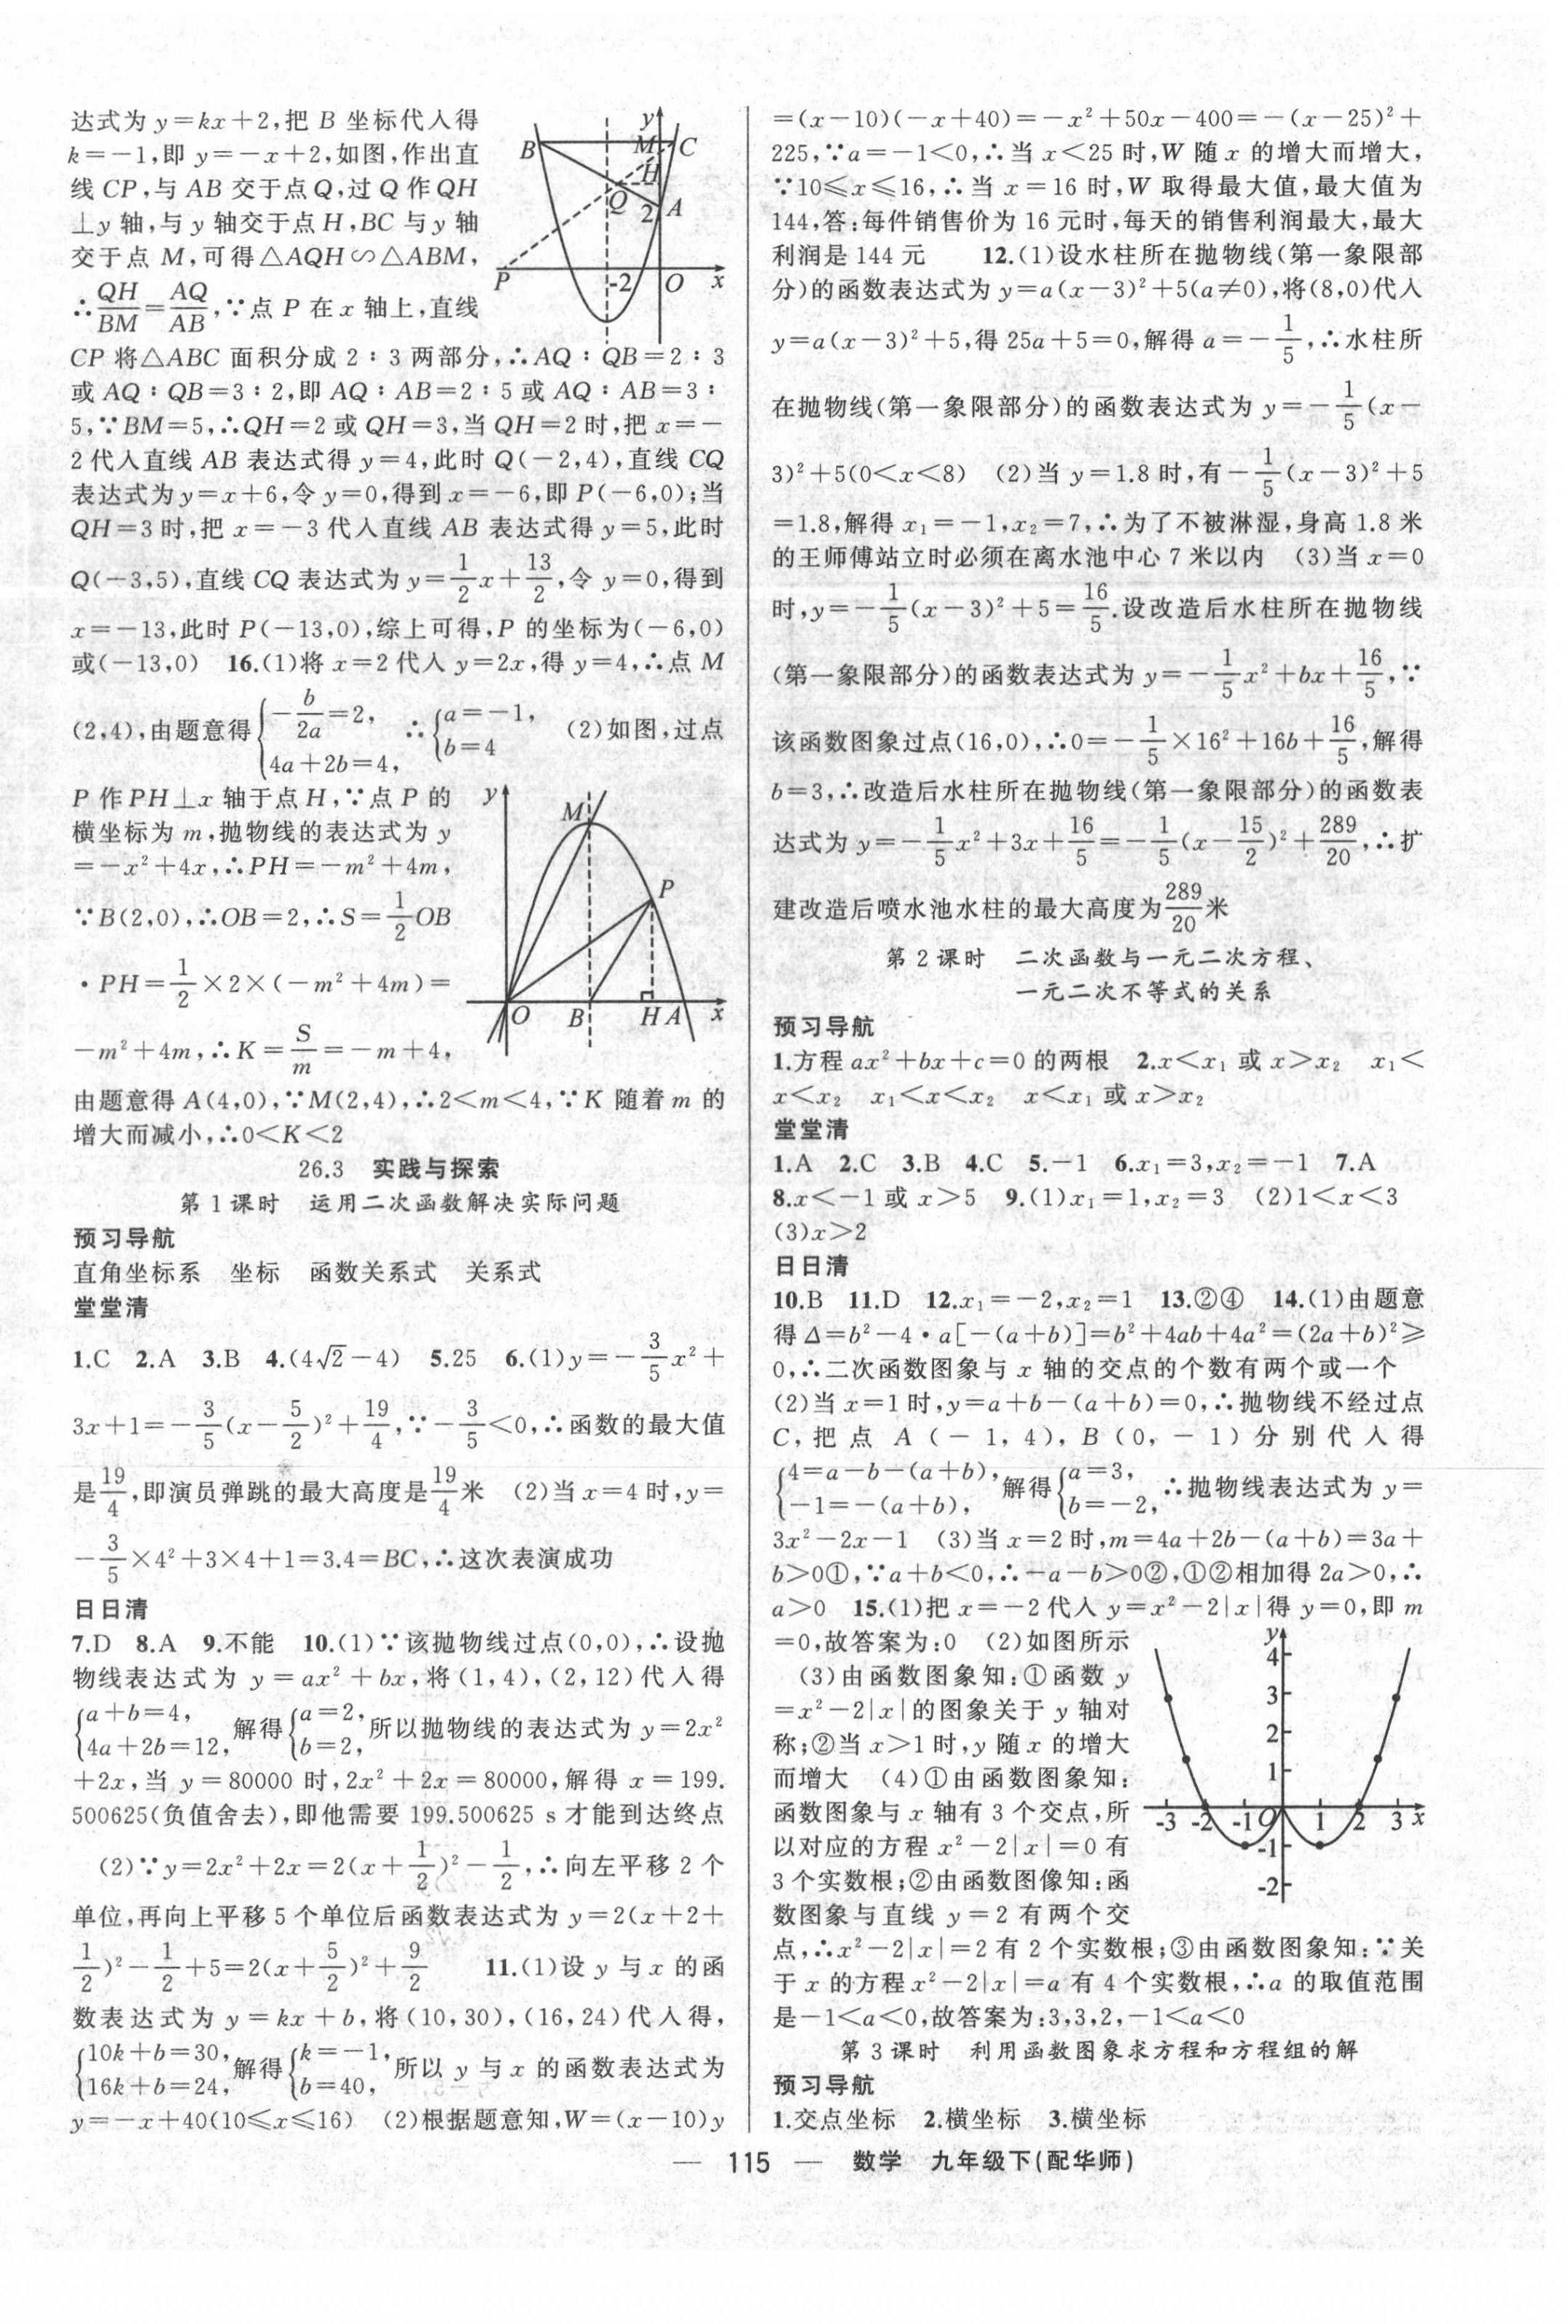 达式为 y=kx+2,把 B 坐标代入得
k=-1,即 y=-x+2,如图,作出直
线 CP,与 AB 交于点 Q,过 Q 作 QH
⊥y 轴,与 y 轴交于点 H,BC 与 y 轴
交于点 M,可得△AQH∽△ABM,
∴QH/BM=AQ/AB,∵点 P 在 x 轴上,直线
y
B
M
C
H
Q
2
A
P
-2
O
x
CP 将△ABC 面积分成 2∶3 两部分,∴AQ∶QB=2∶3
或 AQ∶QB=3∶2,即 AQ∶AB=2∶5 或 AQ∶AB=3∶
5,∵BM=5,∴QH=2 或 QH=3,当 QH=2 时,把 x=-
2 代入直线 AB 表达式得 y=4,此时 Q(-2,4),直线 CQ
表达式为 y=x+6,令 y=0,得到 x=-6,即 P(-6,0);当
QH=3 时,把 x=-3 代入直线 AB 表达式得 y=5,此时
Q(-3,5),直线 CQ 表达式为 y=1/2x+13/2,令 y=0,得到
x=-13,此时 P(-13,0),综上可得,P 的坐标为(-6,0)
或(-13,0) 16.(1)将 x=2 代入 y=2x,得 y=4,∴点 M
(2,4),由题意得{-b/2a=2, 4a+2b=4, ∴{a=-1, b=4 (2)如图,过点
P 作 PH⊥x 轴于点 H,∵点 P 的
横坐标为 m,抛物线的表达式为 y
=-x²+4x,∴PH=-m²+4m,
∵B(2,0),∴OB=2,∴S=1/2OB
·PH=1/2×2×(-m²+4m)=
-m²+4m,∴K=S/m=-m+4,
y
M
P
O
B
H
A
x
由题意得 A(4,0),∵M(2,4),∴2<m<4,∵K 随着 m 的
增大而减小,∴0<K<2
26.3 实践与探索
第 1 课时 运用二次函数解决实际问题
预习导航
直角坐标系 坐标 函数关系式 关系式
堂堂清
1.C 2.A 3.B 4.(4√2-4) 5.25 6.(1)y=-3/5x²+
3x+1=-3/5(x-5/2)²+19/4,∵-3/5<0,∴函数的最大值
是19/4,即演员弹跳的最大高度是19/4米 (2)当 x=4 时,y=
-3/5×4²+3×4+1=3.4=BC,∴这次表演成功
日日清
7.D 8.A 9.不能 10.(1)∵该抛物线过点(0,0),∴设抛
物线表达式为 y=ax²+bx,将(1,4),(2,12)代入得
{a+b=4, 4a+2b=12, 解得{a=2, b=2, 所以抛物线的表达式为 y=2x²
+2x,当 y=80000 时,2x²+2x=80000,解得 x=199.
500625(负值舍去),即他需要 199.500625 s 才能到达终点
(2)∵y=2x²+2x=2(x+1/2)²-1/2,∴向左平移 2 个
单位,再向上平移 5 个单位后函数表达式为 y=2(x+2+
1/2)²-1/2+5=2(x+5/2)²+9/2 11.(1)设 y 与 x 的函
数表达式为 y=kx+b,将(10,30),(16,24)代入得,
{10k+b=30, 16k+b=24, 解得{k=-1, b=40, 所以 y 与 x 的函数表达式为
y=-x+40(10≤x≤16) (2)根据题意知,W=(x-10)y
=(x-10)(-x+40)=-x²+50x-400=-(x-25)²+
225,∵a=-1<0,∴当 x<25 时,W 随 x 的增大而增大,
∵10≤x≤16,∴当 x=16 时,W 取得最大值,最大值为
144,答:每件销售价为 16 元时,每天的销售利润最大,最大
利润是 144 元 12.(1)设水柱所在抛物线(第一象限部
分)的函数表达式为 y=a(x-3)²+5(a≠0),将(8,0)代入
y=a(x-3)²+5,得 25a+5=0,解得 a=-1/5,∴水柱所
在抛物线(第一象限部分)的函数表达式为 y=-1/5(x-
3)²+5(0<x<8) (2)当 y=1.8 时,有-1/5(x-3)²+5
=1.8,解得 x₁=-1,x₂=7,∴为了不被淋湿,身高 1.8 米
的王师傅站立时必须在离水池中心 7 米以内 (3)当 x=0
时,y=-1/5(x-3)²+5=16/5.设改造后水柱所在抛物线
(第一象限部分)的函数表达式为 y=-1/5x²+bx+16/5,∵
该函数图象过点(16,0),∴0=-1/5×16²+16b+16/5,解得
b=3,∴改造后水柱所在抛物线(第一象限部分)的函数表
达式为 y=-1/5x²+3x+16/5=-1/5(x-15/2)²+289/20,∴扩
建改造后喷水池水柱的最大高度为289/20米
第 2 课时 二次函数与一元二次方程、
一元二次不等式的关系
预习导航
1.方程 ax²+bx+c=0 的两根 2.x<x₁ 或 x>x₂ x₁<
x<x₂ x₁<x<x₂ x<x₁ 或 x>x₂
堂堂清
1.A 2.C 3.B 4.C 5.-1 6.x₁=3,x₂=-1 7.A
8.x<-1 或 x>5 9.(1)x₁=1,x₂=3 (2)1<x<3
(3)x>2
日日清
10.B 11.D 12.x₁=-2,x₂=1 13.②④ 14.(1)由题意
得 Δ=b²-4·a[-(a+b)]=b²+4ab+4a²=(2a+b)²≥
0,∴二次函数图象与 x 轴的交点的个数有两个或一个
(2)当 x=1 时,y=a+b-(a+b)=0,∴抛物线不经过点
C,把点 A(-1,4),B(0,-1)分别代入得
{4=a-b-(a+b), -1=-(a+b), 解得{a=3, b=-2, ∴抛物线表达式为 y=
3x²-2x-1 (3)当 x=2 时,m=4a+2b-(a+b)=3a+
b>0①,∵a+b<0,∴-a-b>0②,①②相加得 2a>0,∴
a>0 15.(1)把 x=-2 代入 y=x²-2|x|得 y=0,即 m
=0,故答案为:0 (2)如图所示
(3)由函数图象知:①函数 y
=x²-2|x|的图象关于 y 轴对
称;②当 x>1 时,y 随 x 的增大
而增大 (4)①由函数图象知:
函数图象与 x 轴有 3 个交点,所
以对应的方程 x²-2|x|=0 有
3 个实数根;②由函数图像知:函
数图象与直线 y=2 有两个交
y
4
3
2
1
-3 -2 -1 O 1 2 3 x
-1
-2
点,∴x²-2|x|=2 有 2 个实数根;③由函数图象知:∵关
于 x 的方程 x²-2|x|=a 有 4 个实数根,∴a 的取值范围
是-1<a<0,故答案为:3,3,2,-1<a<0
第 3 课时 利用函数图象求方程和方程组的解
预习导航
1.交点坐标 2.横坐标 3.横坐标
— 115 — 数学 九年级下(配华师)